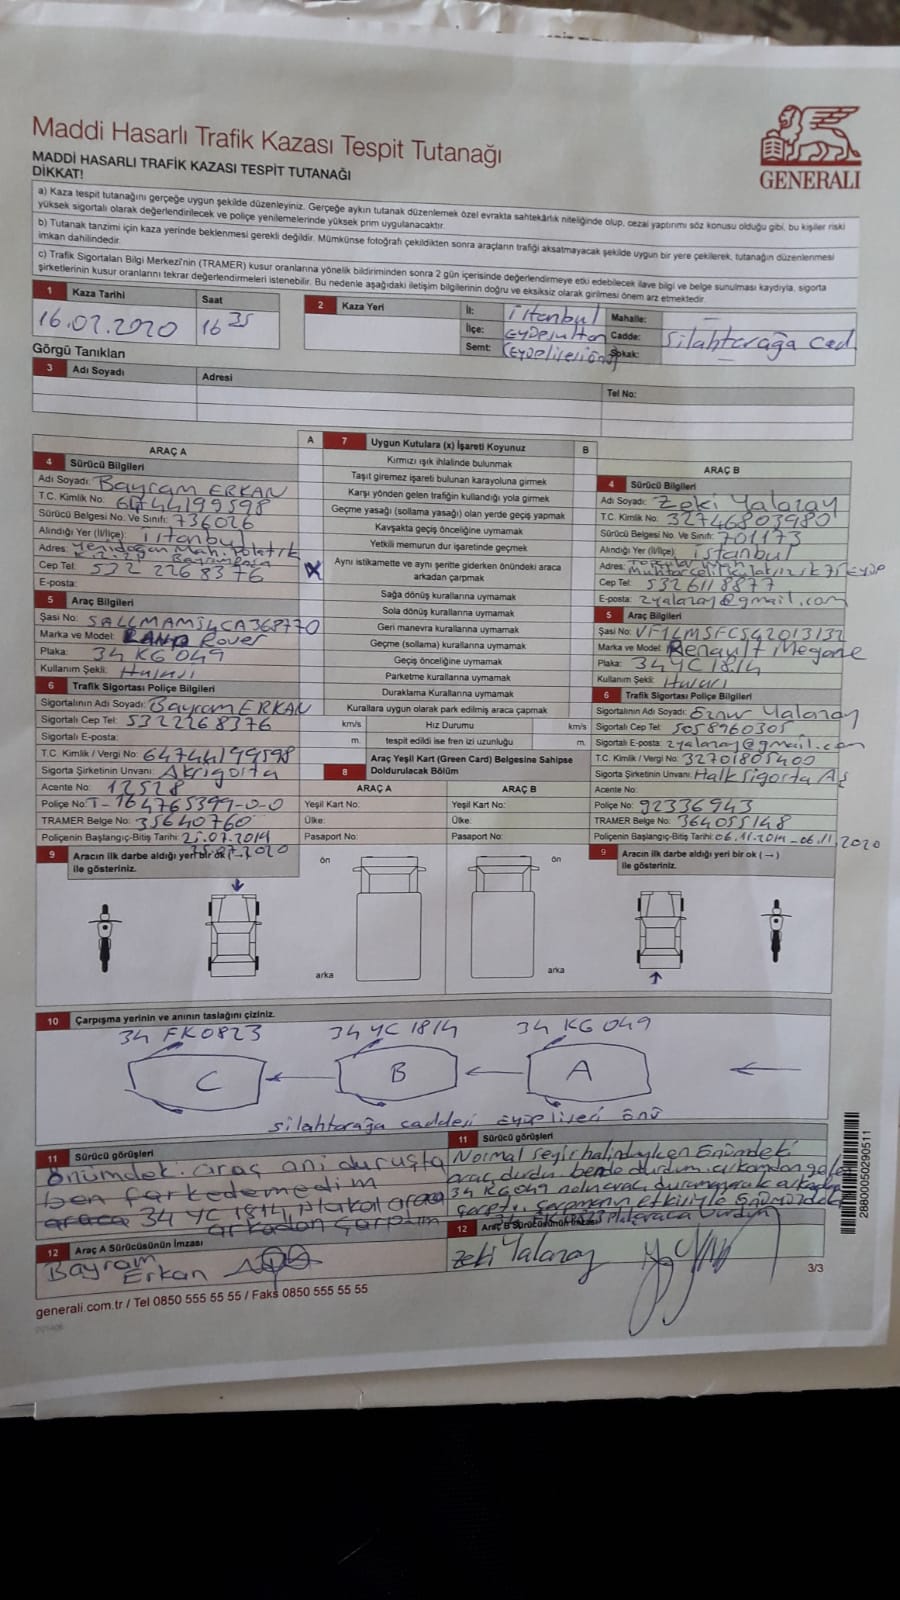 Maddi Hasarlı Trafik Kazası Tespit Tutanağı
GENERALI
MADDİ HASARLI TRAFİK KAZASI TESPİT TUTANAĞI
DİKKAT!
a) Kaza tespit tutanağını gerçeğe uygun şekilde düzenleyiniz. Gerçeğe aykırı tutanak düzenlemek özel evrakta sahtekârlık niteliğinde olup, cezai yaptırımı söz konusu olduğu gibi, bu kişiler riski
yüksek sigortalı olarak değerlendirilecek ve poliçe yenilemelerinde yüksek prim uygulanacaktır.
b) Tutanak tanzimi için kaza yerinde beklenmesi gerekli değildir. Mümkünse fotoğrafı çekildikten sonra araçların trafiği aksatmayacak şekilde uygun bir yere çekilerek, tutanağın düzenlenmesi
imkan dahilindedir.
c) Trafik Sigortaları Bilgi Merkezi'nin (TRAMER) kusur oranlarına yönelik bildiriminden sonra 2 gün içerisinde değerlendirmeye etki edebilecek ilave bilgi ve belge sunulması kaydıyla, sigorta
şirketlerinin kusur oranlarını tekrar değerlendirmeleri istenebilir. Bu nedenle aşağıdaki iletişim bilgilerinin doğru ve eksiksiz olarak girilmesi önem arz etmektedir.
1 Kaza Tarihi Saat
16.02.2020 16 35
2 Kaza Yeri
İl: İstanbul Mahalle: —
İlçe: Eyüpsultan Cadde: Silahtarağa Cad
Semt: (Eyüp lisesi önü) Sokak:
Görgü Tanıkları
3 Adı Soyadı Adresi Tel No:
ARAÇ A
4 Sürücü Bilgileri
Adı Soyadı: Bayram ERKAN
T.C. Kimlik No: 64744199598
Sürücü Belgesi No. Ve Sınıfı: 736026
Alındığı Yer (İl/İlçe): İstanbul
Adres: Yenidoğan Mah.
Cep Tel: 532 226 8376
E-posta:
5 Araç Bilgileri
Şasi No: SALLMAMS4CA368770
Marka ve Model: LAND Rover
Plaka: 34 KG 049
Kullanım Şekli: Hususi
6 Trafik Sigortası Poliçe Bilgileri
Sigortalının Adı Soyadı: Bayram ERKAN
Sigortalı Cep Tel: 5322268376
Sigortalı E-posta:
T.C. Kimlik / Vergi No: 64744199598
Sigorta Şirketinin Unvanı: Aksigorta
Acente No: 12528
Poliçe No: T-164765399-0-0
TRAMER Belge No: 35640760
Poliçenin Başlangıç-Bitiş Tarihi: 25.07.2019
25.07.2020
A 7 Uygun Kutulara (x) İşareti Koyunuz B
Kırmızı ışık ihlalinde bulunmak
Taşıt giremez işareti bulunan karayoluna girmek
Karşı yönden gelen trafiğin kullandığı yola girmek
Geçme yasağı (sollama yasağı) olan yerde geçiş yapmak
Kavşakta geçiş önceliğine uymamak
Yetkili memurun dur işaretinde geçmek
X Aynı istikamette ve aynı şeritte giderken önündeki araca
arkadan çarpmak
Sağa dönüş kurallarına uymamak
Sola dönüş kurallarına uymamak
Geri manevra kurallarına uymamak
Geçme (sollama) kurallarına uymamak
Geçiş önceliğine uymamak
Parketme kurallarına uymamak
Duraklama Kurallarına uymamak
Kurallara uygun olarak park edilmiş araca çapmak
km/s Hız Durumu km/s
m. tespit edildi ise fren izi uzunluğu m.
8 Araç Yeşil Kart (Green Card) Belgesine Sahipse
Doldurulacak Bölüm
ARAÇ A ARAÇ B
Yeşil Kart No: Yeşil Kart No:
Ülke: Ülke:
Pasaport No: Pasaport No:
ARAÇ B
4 Sürücü Bilgileri
Adı Soyadı: Zeki Yalaray
T.C. Kimlik No: 32746803980
Sürücü Belgesi No. Ve Sınıfı: 701173
Alındığı Yer (İl/İlçe): İstanbul
Adres:
Cep Tel: 5326118877
E-posta: zyalaray@gmail.com
5 Araç Bilgileri
Şasi No: VF1LMSFCS42013132
Marka ve Model: Renault Megane
Plaka: 34 YC 1814
Kullanım Şekli: Hususi
6 Trafik Sigortası Poliçe Bilgileri
Sigortalının Adı Soyadı: Öznur Yalaray
Sigortalı Cep Tel: 5058960305
Sigortalı E-posta: zyalaray@gmail.com
T.C. Kimlik / Vergi No: 32701805400
Sigorta Şirketinin Unvanı: Halk Sigorta AŞ
Acente No:
Poliçe No: 92336943
TRAMER Belge No: 364055148
Poliçenin Başlangıç-Bitiş Tarihi: 06.11.2019-06.11.2020
9 Aracın ilk darbe aldığı yeri bir ok (→)
ile gösteriniz.
ön
arka
ön
arka
9 Aracın ilk darbe aldığı yeri bir ok (→)
ile gösteriniz.
10 Çarpışma yerinin ve anının taslağını çiziniz.
34 FK0823 34 YC 1814 34 KG 049
C B A
silahtarağa caddesi Eyüp lisesi önü
11 Sürücü görüşleri
Önümdeki araç ani duruşta
ben farkedemedim
araca 34 YC 1814 plakalı araca
arkadan çarptım
11 Sürücü görüşleri
Normal seyir halindeyken önümdeki
araç durdu bende durdum arkamdan gelen
34 KG 049 nolu araç duramayarak arkadan
çarptı. çarpmanın etkisiyle önümdeki
34 FK 0823 Plakalı araca vurdum
12 Araç A Sürücüsünün İmzası
Bayram
Erkan
12 Araç B Sürücüsünün İmzası
Zeki Yalaray
3/3
28800050290511
generali.com.tr / Tel 0850 555 55 55 / Faks 0850 555 55 55